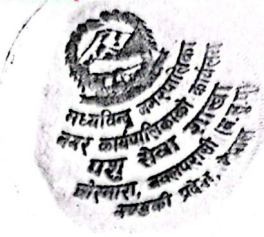 मध्यविन्दु नगरपालिका
नगर कार्यपालिकाको कार्यालय
पशु सेवा शाखा
चोरमारा, नवलपरासी (ब.सु.पू.)
गण्डकी प्रदेश, नेपाल